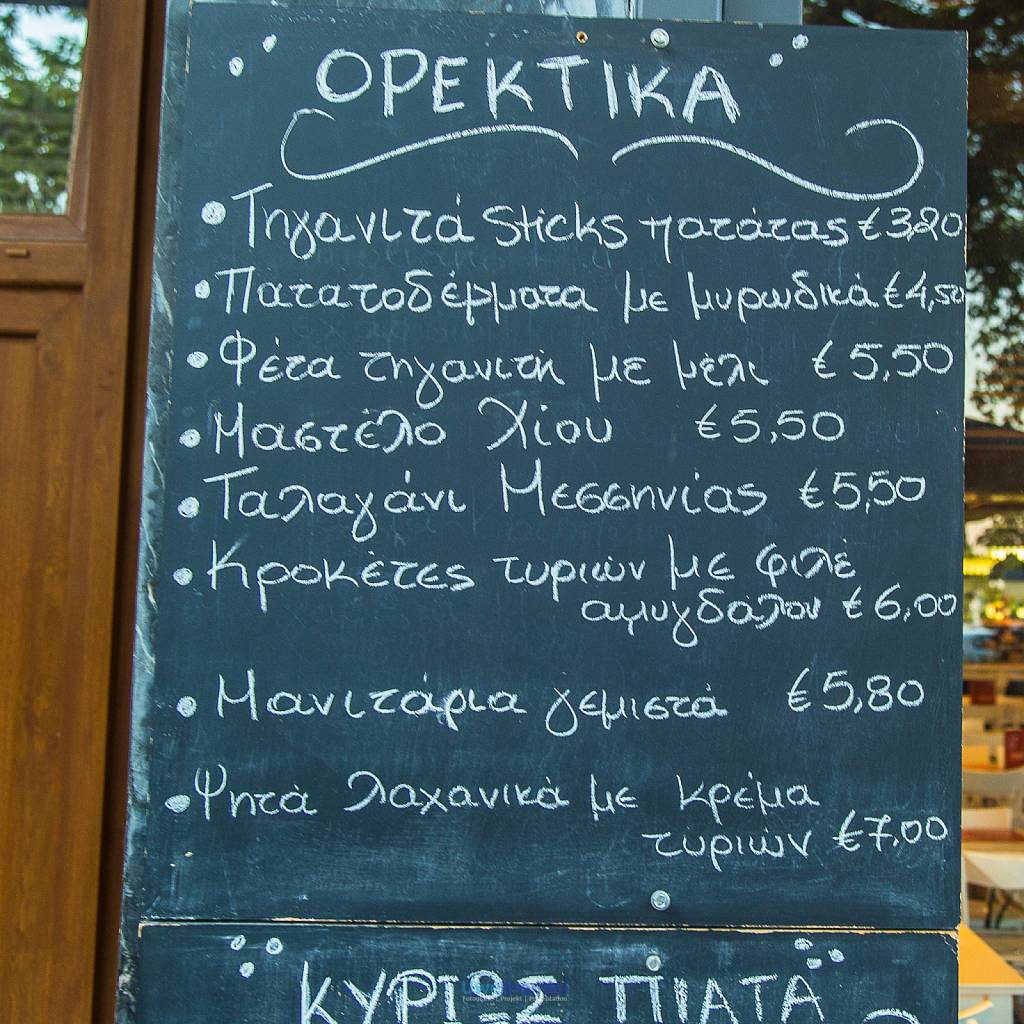 ΟΡΕΚΤΙΚΑ
• Τηγανιτά Sticks πατάτας €3,20
• Πατατοδέρματα με μυρωδικά €4,50
• Φέτα τηγανιτή με μέλι €5,50
• Μαστέλο Χίου €5,50
• Ταλαγάνι Μεσσηνίας €5,50
• Κροκέτες τυριών με φιλέ
αμυγδάλου €6,00
• Μανιτάρια γεμιστά €5,80
• Ψητά λαχανικά με κρέμα
τυριών €7,00
ΚΥΡΙΩΣ ΠΙΑΤΑ